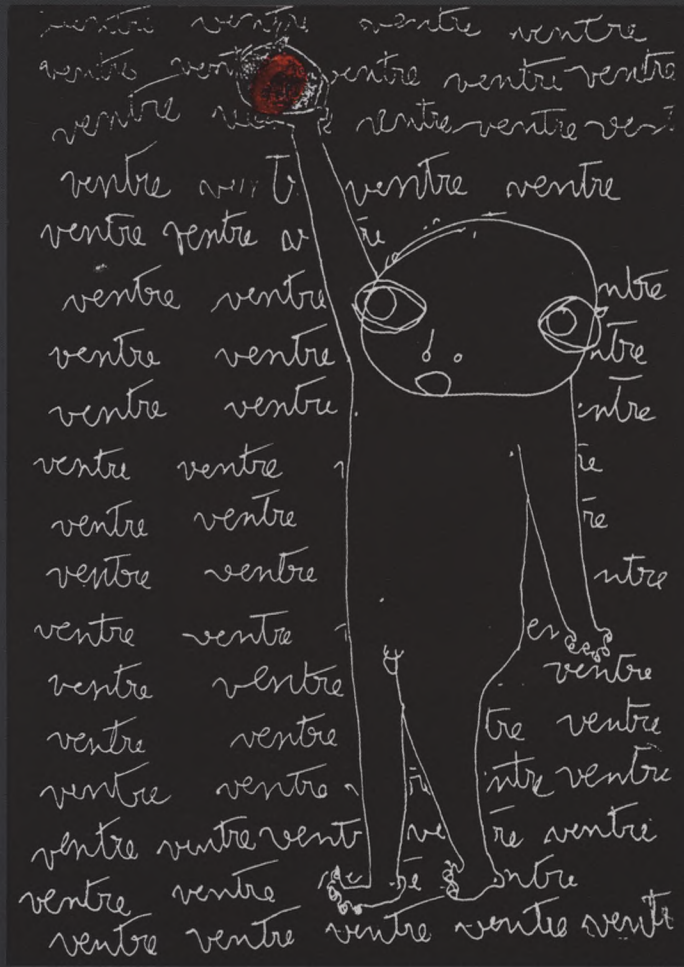 ventre ventre ventre ventre
ventre ven ventre ventre ventre
ventre ventre ventre ven
ventre ven ventre ventre
ventre ventre v re
ventre ventre ntre
ventre ventre ntre
ventre ventre entre
ventre ventre re
ventre ventre re
ventre ventre ntre
ventre ventre en
ventre ventre ventre
ventre ventre tre ventre
ventre ventre ntre ventre
ventre ventre vent ve re ventre
ventre ventre entre
ventre ventre ventre ventre ventr